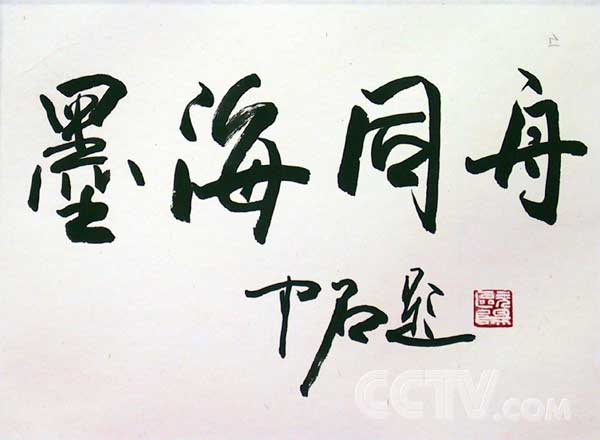 墨海同舟
中石题
CCTV.COM